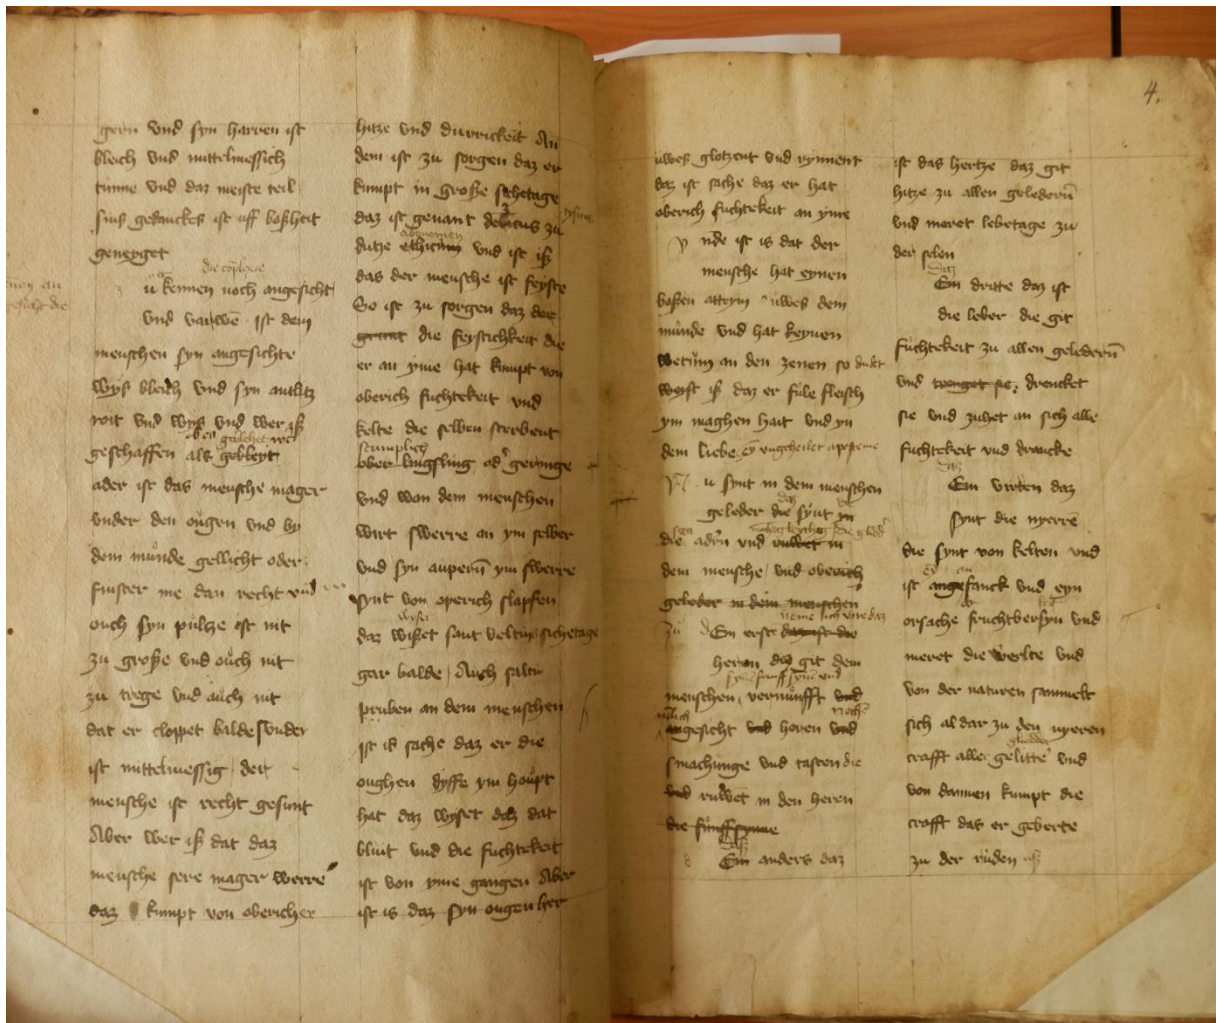 gern vnd syn harren ist
bleich vnd mittelmessich
tünne vnd daz meiste teil
sins gedanckes ist uff boßheit
geneyget
die
u kennen noch angesicht
vnd varwe ist dem
menschen syn angesichte
wyß bleich vnd syn antlitz
roit vnd wyß vnd wer iß
geschaffen als gebleyt
ader ist das mensche mager
vnder den oůgen vnd by
dem můnde gellicht oder
finster me dan recht vnd
ouch syn pulße ist nit
zu große vnd oůch nit
zu trege vnd aůch nit
dat er cloppet balde sunder
ist mittelmessig der
mensche ist recht gesunt
Aber wer iß dat daz
mensche sere mager werre
daz kumpt von obericher
hitze vnd durrickeit An
dem ist zu sorgen daz er
kumpt in große sichetage
daz ist genant zu
dutze ethicum vnd ist iß
das der mensche ist feyste
So ist zu sorgen daz der
die feystichkeit die
er an yme hat kumpt von
oberich fuchtekeit vnd
kelte die selben sterbent
ober lingsling geringe
vnd wan dem menschen
wirt swerre an ym selber
vnd syn auperu ym swerre
synt von operich slapfen
daz wißet sant veltins sichetage
gar balde Auch saltu
pruben an dem menschen
ist iß sache daz er die
oughen dyffe ym hoůpt
hat daz wyset daz dat
bluit vnd die fuchtekeit
ist von yme gangen Aber
ist is daz syn ougen her
4.
uwes glotzent vnd rynnent
daz ist sache daz er hat
oberich fuchtekeit an yme
nde ist is dat der
mensche hat eynen
boßen attym uwes dem
můnde vnd hat keynen
wetům an den zenen so
weist iß daz er fule fleisch
ym maghen hait vnd yn
dem liebe ungeheilet aposteme
u synt in dem menschen
geleder die synt yn
die adrn vnd in
dem mensche vnd oberich
geleder in dem menschen
Ein erste daz ist die
heren daz git dem
menschen vernůnfft vnd
angesicht vnd horen vnd
smachunge vnd tasten die
vnd růwet in den heren
die fůnffsynne
Ein anders daz
ist das hertze daz git
hitze zu allen gelederū
vnd meret lebetage zu
der selen
daz
Ein dritte daz ist
die leber die git
fuchtekeit zu allen gelederū
vnd drencket
sie vnd zuhet an sich alle
fuchtekeit vnd drancke
daz
Ein virten daz
synt die nyerē
die synt von kelten vnd
ist angefanck vnd eyn
orsache fruchtbersyn vnd
meret die werlte vnd
von der naturen sammelt
sich al dar zu den nyeren
crafft aller gelitte vnd
von dannen kumpt die
crafft das er geberte
zu der růden